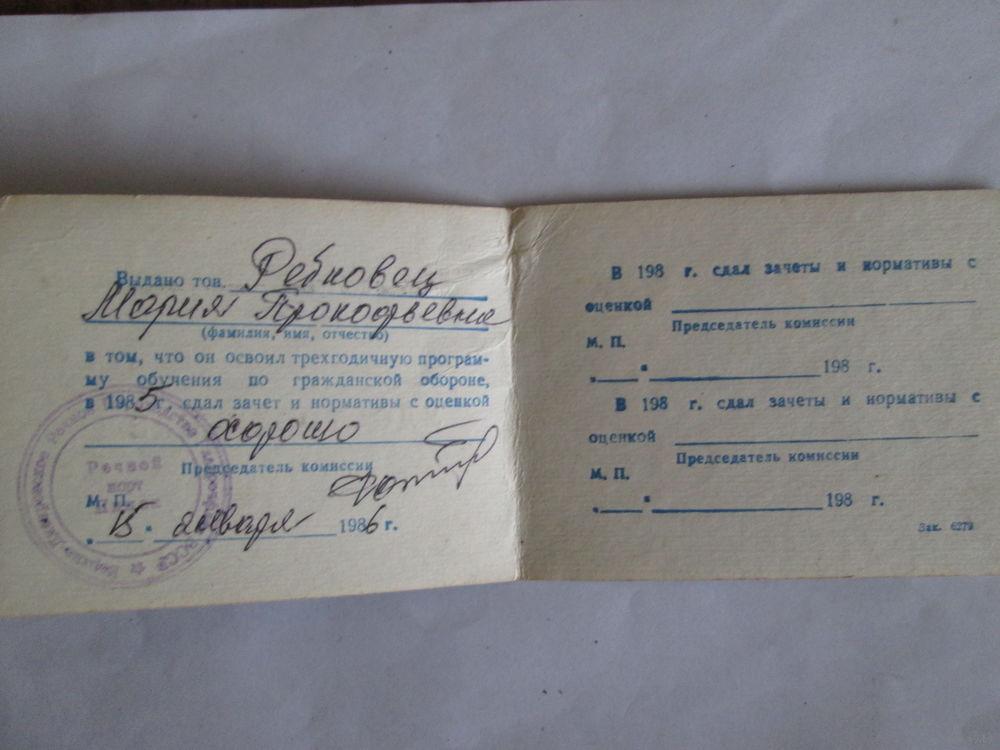 Выдано тов. Ребковец
Мария Прокофьевна
(фамилия, имя, отчество)
в том, что он освоил трехгодичную програм-
му обучения по гражданской обороне,
в 1985 г. сдал зачет и нормативы с оценкой
хорошо
Председатель комиссии
М. П.
„15" января 1986 г.
Речной
порт
В 198 г. сдал зачеты и нормативы с
оценкой
Председатель комиссии
М. П.
„ " 198 г.
В 198 г. сдал зачеты и нормативы с
оценкой
Председатель комиссии
М. П.
„ " 198 г.
Зак. 6279